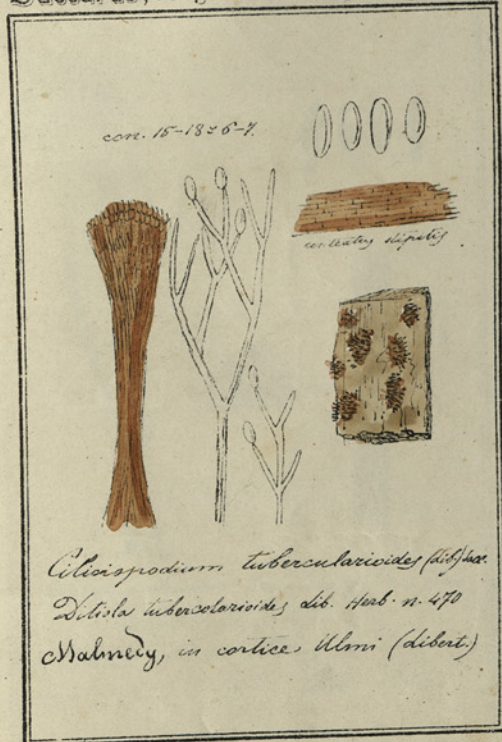 con. 15-18 = 6-7.
contextus stipitis
Ciliciopodium tubercularioides (Lib.) Sacc.
Ditiola tubercolarioides Lib. Herb. n. 470
Malmedy, in cortice Ulmi (Libert.)